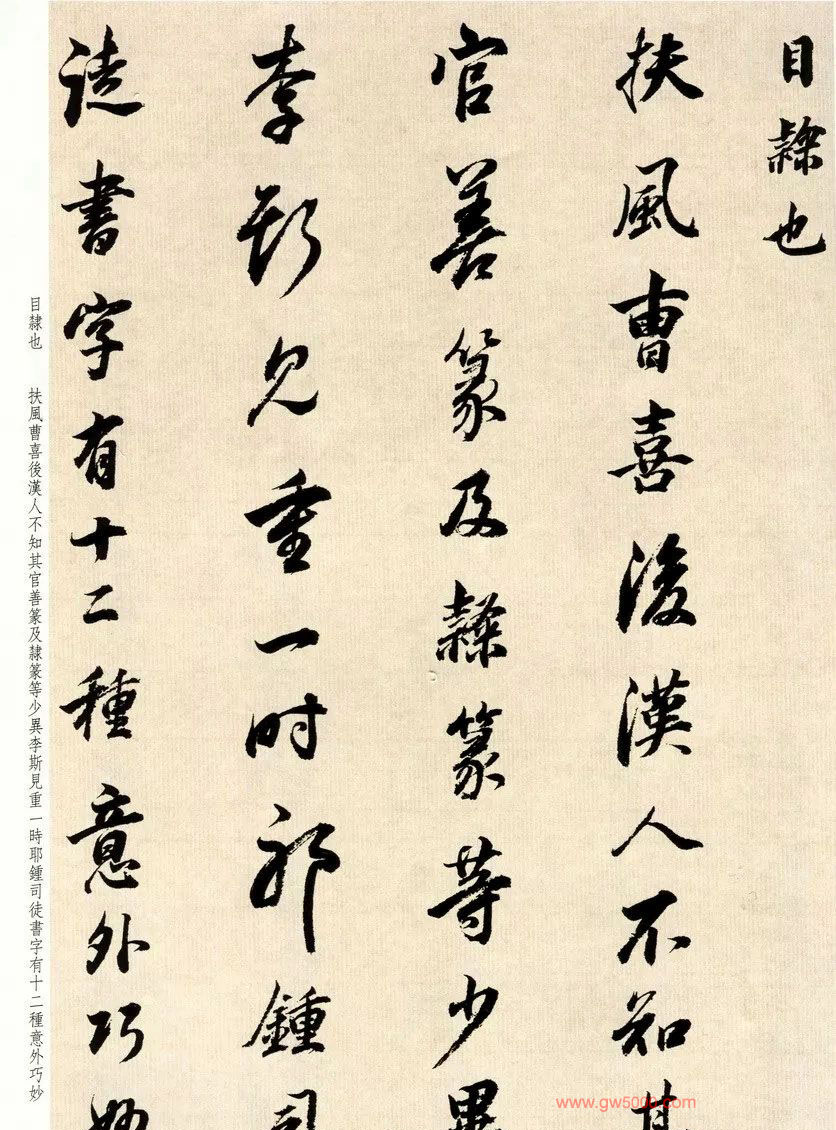 目隸也
扶風曹喜後漢人不知其
官善篆及隸篆等少異
李斯見重一时耶鍾司
徒書字有十二種意外巧妙
目隸也　扶風曹喜後漢人不知其官善篆及隸篆等少異李斯見重一時耶鍾司徒書字有十二種意外巧妙
www.gw5000.com